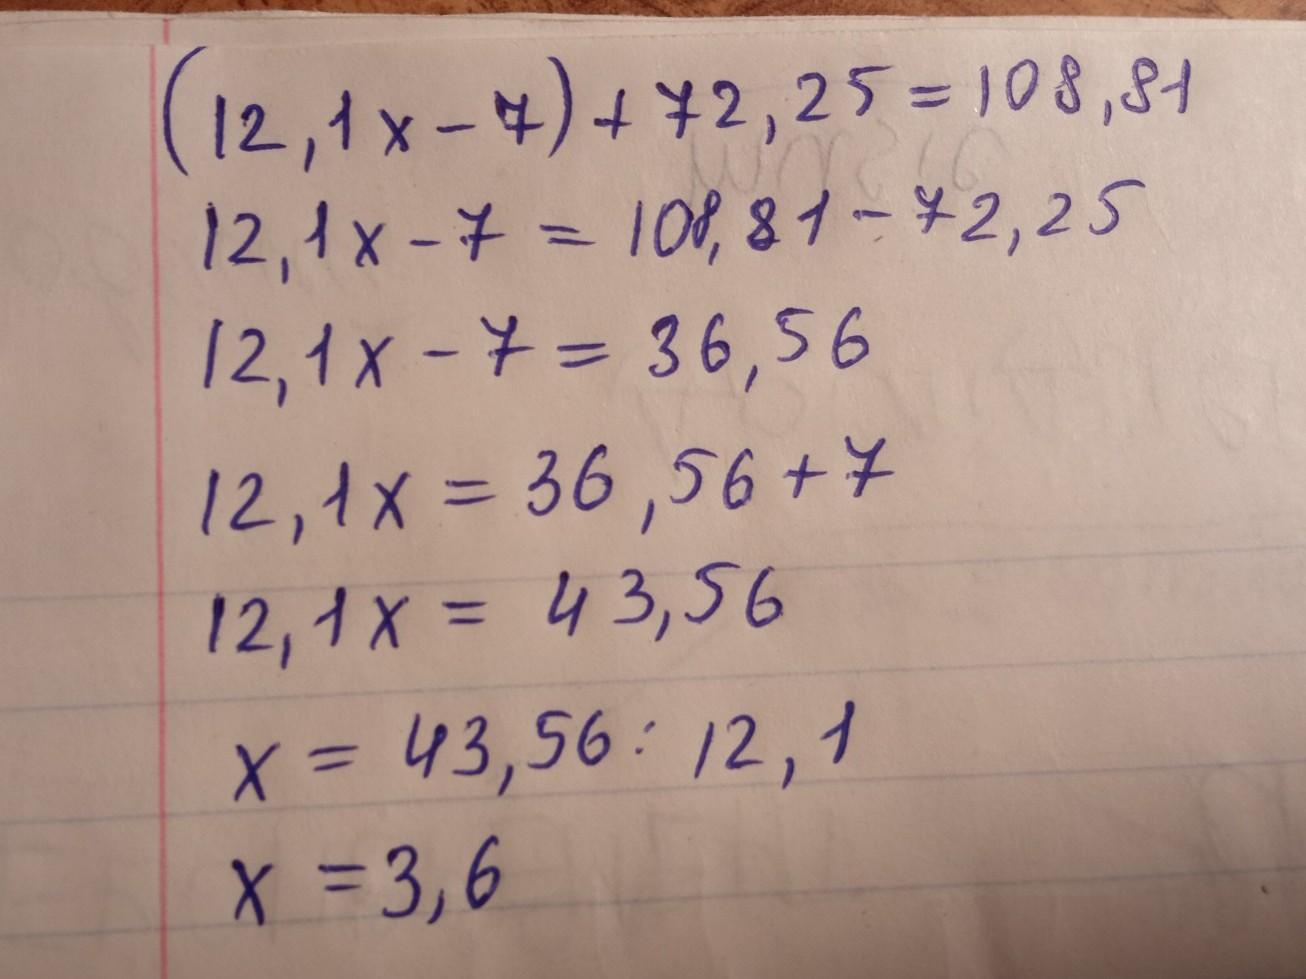 (12,1x-7)+72,25=108,81
12,1x-7=108,81-72,25
12,1x-7=36,56
12,1x=36,56+7
12,1x=43,56
x=43,56:12,1
x=3,6